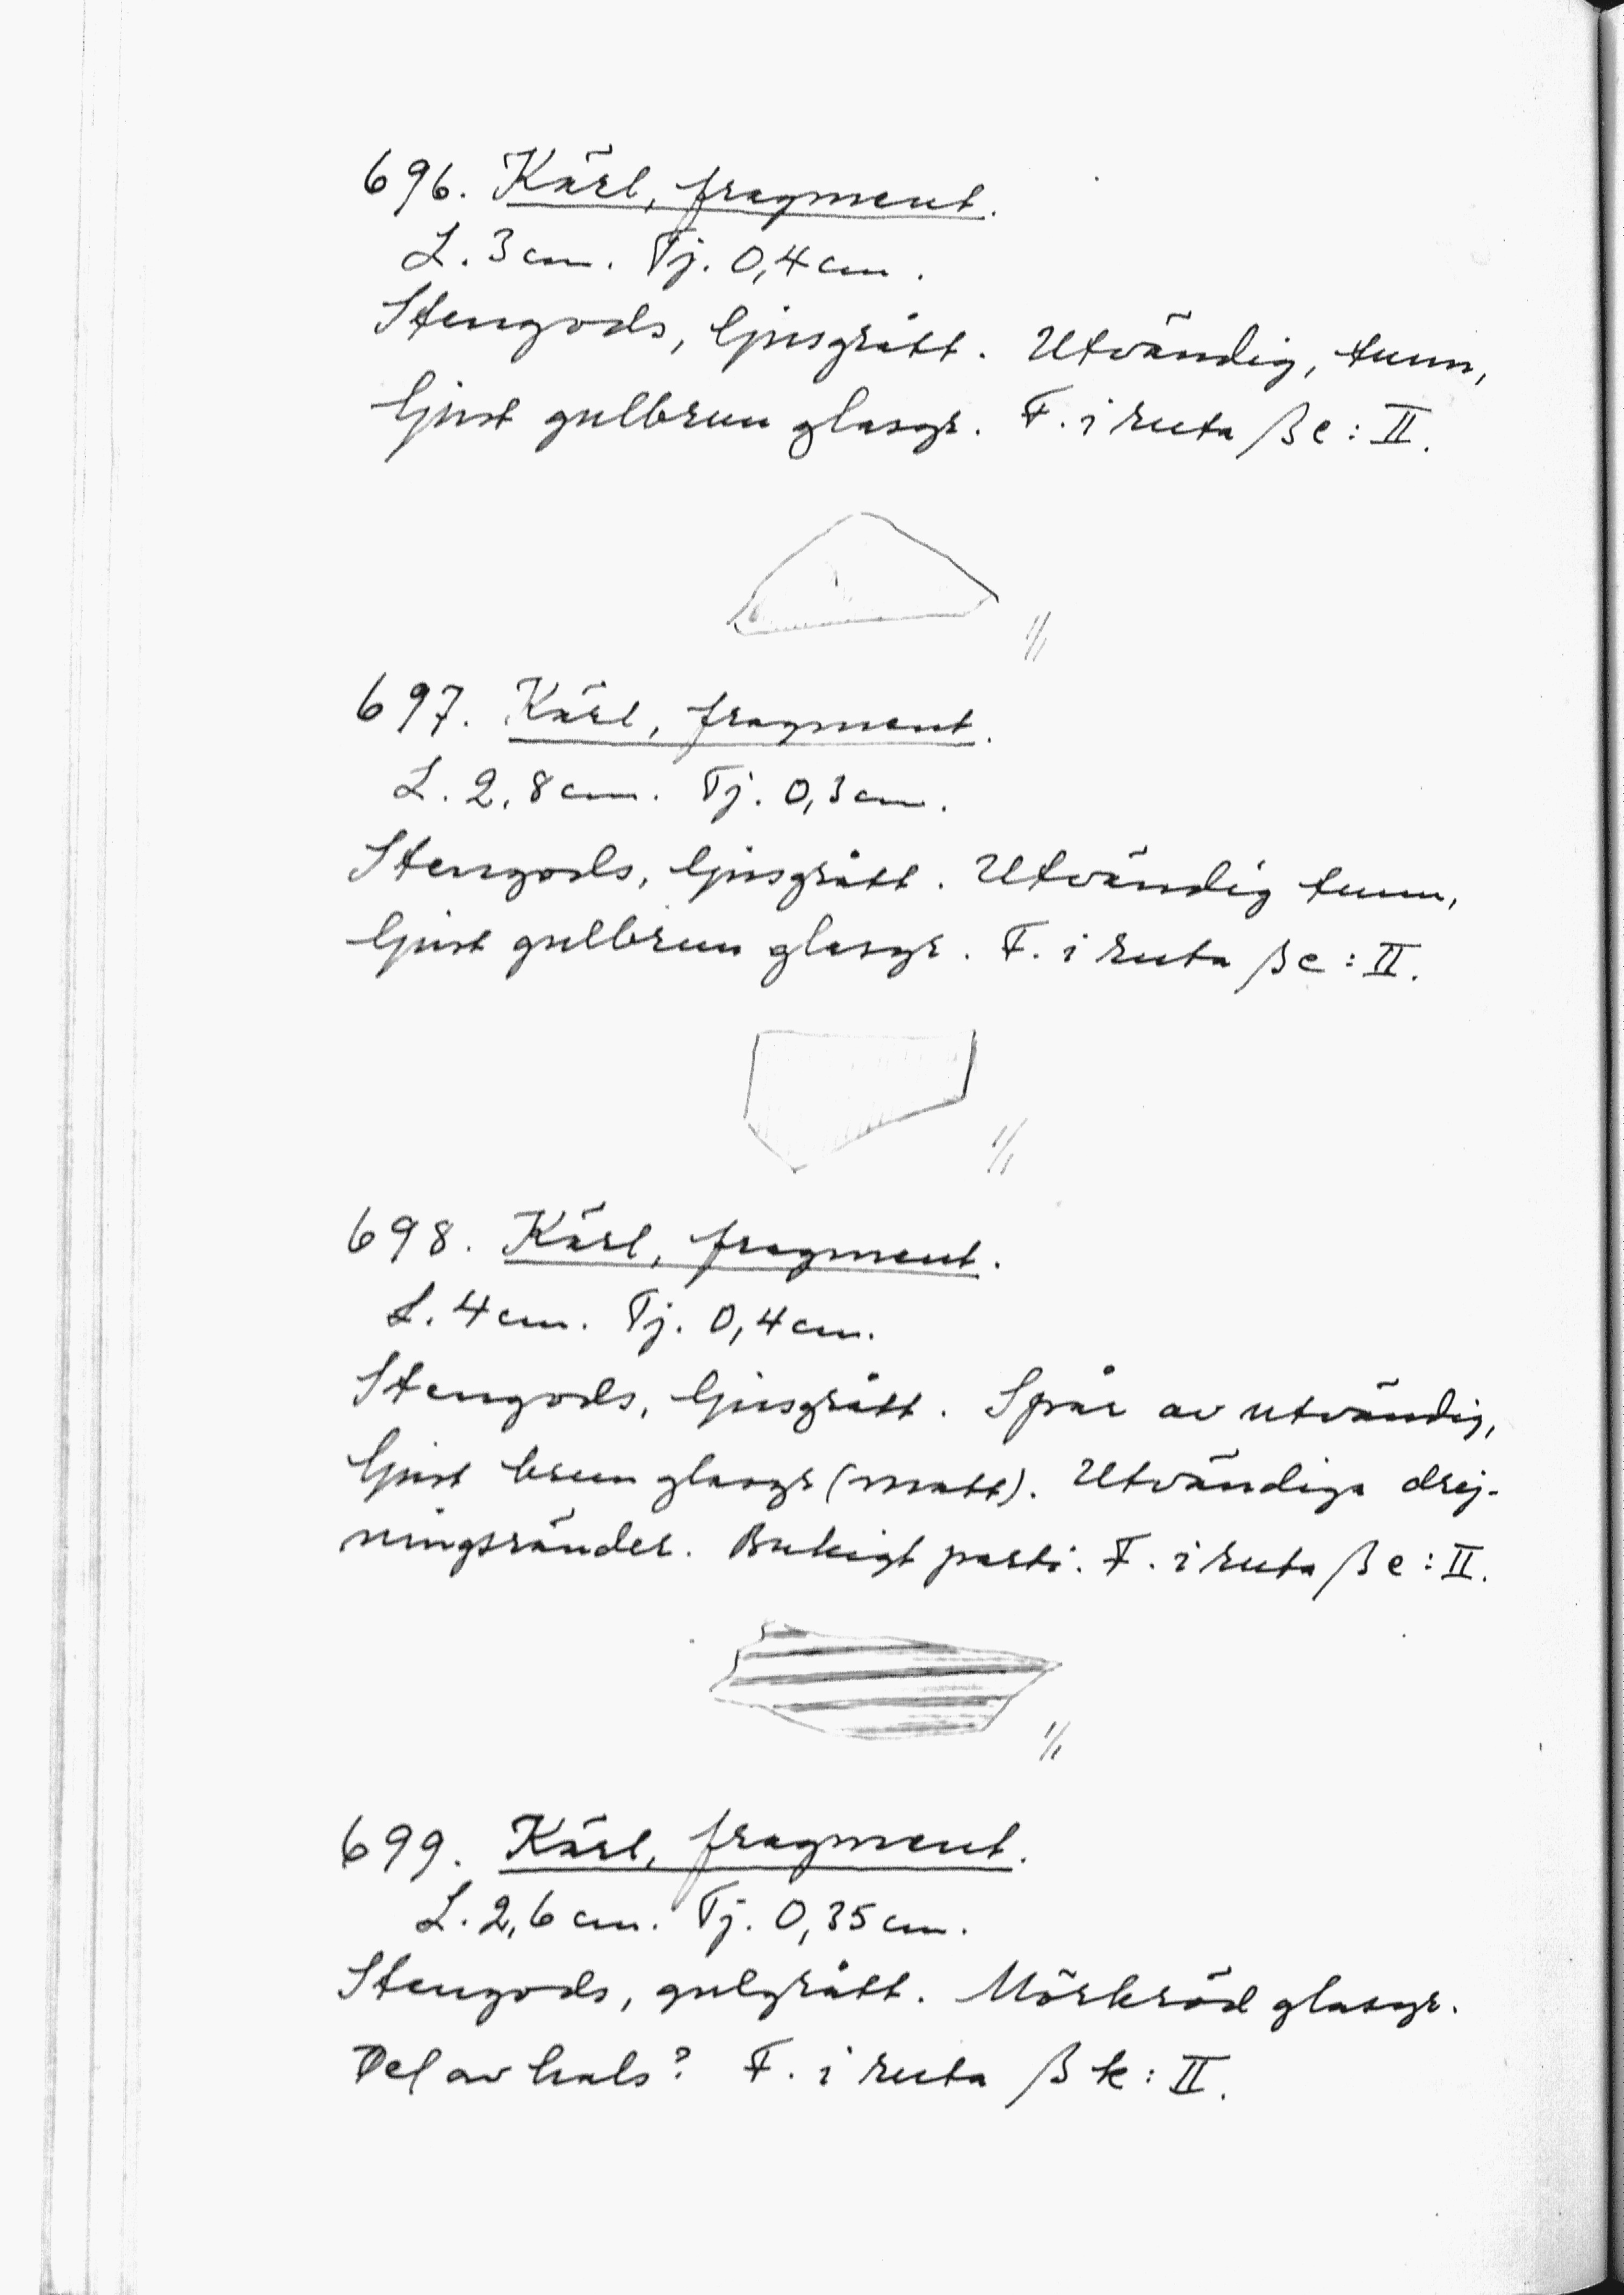 696. Kärl, fragment.
L. 3 cm. Tj. 0,4 cm.
Stengods, ljusgrått. Utvändig, tunn,
ljust gulbrun glasyr. F. i ruta βe: II.
1/1
697. Kärl, fragment.
L. 2,8 cm. Tj. 0,3 cm.
Stengods, ljusgrått. Utvändig tunn,
ljust gulbrun glasyr. F. i ruta βe: II.
1/1
698. Kärl, fragment.
L. 4 cm. Tj. 0,4 cm.
Stengods, ljusgrått. Spår av utvändig,
ljust brun glasyr (matt). Utvändiga drej-
ningsränder. Bukigt parti. F. i ruta βe: II.
1/1
699. Kärl, fragment.
L. 2,6 cm. Tj. 0,35 cm.
Stengods, gulgrått. Mörkröd glasyr.
Del av hals? F. i ruta βk: II.